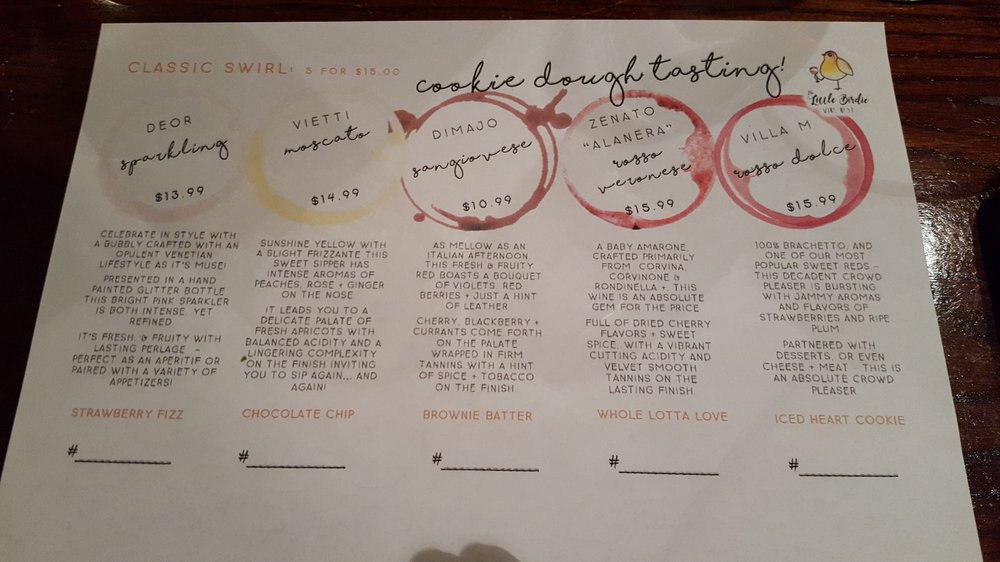 CLASSIC SWIRL: 5 FOR $15.00
cookie dough tasting!
Little Birdie
DEOR
sparkling
$13.99
CELEBRATE IN STYLE WITH
A BUBBLY CRAFTED WITH AN
OPULENT VENETIAN
LIFESTYLE AS IT'S MUSE!
PRESENTED IN A HAND
PAINTED GLITTER BOTTLE
THIS BRIGHT PINK SPARKLER
IS BOTH INTENSE, YET
REFINED
IT'S FRESH, & FRUITY WITH
LASTING PERLAGE -
PERFECT AS AN APERITIF OR
PAIRED WITH A VARIETY OF
APPETIZERS!
STRAWBERRY FIZZ
#
VIETTI
moscato
$14.99
SUNSHINE YELLOW WITH
A SLIGHT FRIZZANTE THIS
SWEET SIPPER HAS
INTENSE AROMAS OF
PEACHES, ROSE + GINGER
ON THE NOSE
IT LEADS YOU TO A
DELICATE PALATE OF
FRESH APRICOTS WITH
BALANCED ACIDITY AND A
LINGERING COMPLEXITY
ON THE FINISH INVITING
YOU TO SIP AGAIN... AND
AGAIN!
CHOCOLATE CHIP
#
DIMAJO
sangiovese
$10.99
AS MELLOW AS AN
ITALIAN AFTERNOON,
THIS FRESH & FRUITY
RED BOASTS A BOUQUET
OF VIOLETS, RED
BERRIES + JUST A HINT
OF LEATHER
CHERRY, BLACKBERRY +
CURRANTS COME FORTH
ON THE PALATE
WRAPPED IN FIRM
TANNINS WITH A HINT
OF SPICE + TOBACCO
ON THE FINISH
BROWNIE BATTER
#
ZENATO
"ALANERA"
rosso
veronese
$15.99
A BABY AMARONE,
CRAFTED PRIMARILY
FROM CORVINA,
CORVINONE &
RONDINELLA +, THIS
WINE IS AN ABSOLUTE
GEM FOR THE PRICE
FULL OF DRIED CHERRY
FLAVORS + SWEET
SPICE, WITH A VIBRANT
CUTTING ACIDITY AND
VELVET SMOOTH
TANNINS ON THE
LASTING FINISH
WHOLE LOTTA LOVE
#
VILLA M
rosso dolce
$15.99
100% BRACHETTO, AND
ONE OF OUR MOST
POPULAR SWEET REDS -
THIS DECADENT CROWD
PLEASER IS BURSTING
WITH JAMMY AROMAS
AND FLAVORS OF
STRAWBERRIES AND RIPE
PLUM
PARTNERED WITH
DESSERTS, OR EVEN
CHEESE + MEAT - THIS IS
AN ABSOLUTE CROWD
PLEASER
ICED HEART COOKIE
#